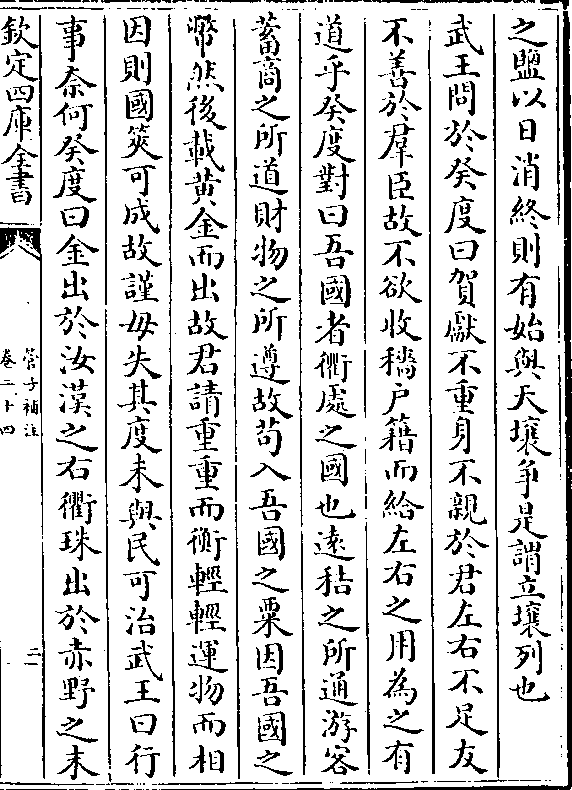 之鹽以日消終則有始與天壤爭是謂立壤列也
武王問於癸度曰賀獻不重身不親於君左右不足友
不善於羣臣故不欲收穡户籍而給左右之用為之有
道乎癸度對曰吾國者衢處之國也遠秸之所通游客
蓄商之所道財物之所遵故苟入吾國之粟因吾國之
幣然後載黄金而出故君請重重而衡輕輕運物而相
因則國筴可成故謹毋失其度未與民可治武王曰行
事奈何癸度曰金出於汝漢之右衢珠出於赤野之末
欽定四庫全書
管子補注
卷二十四
二